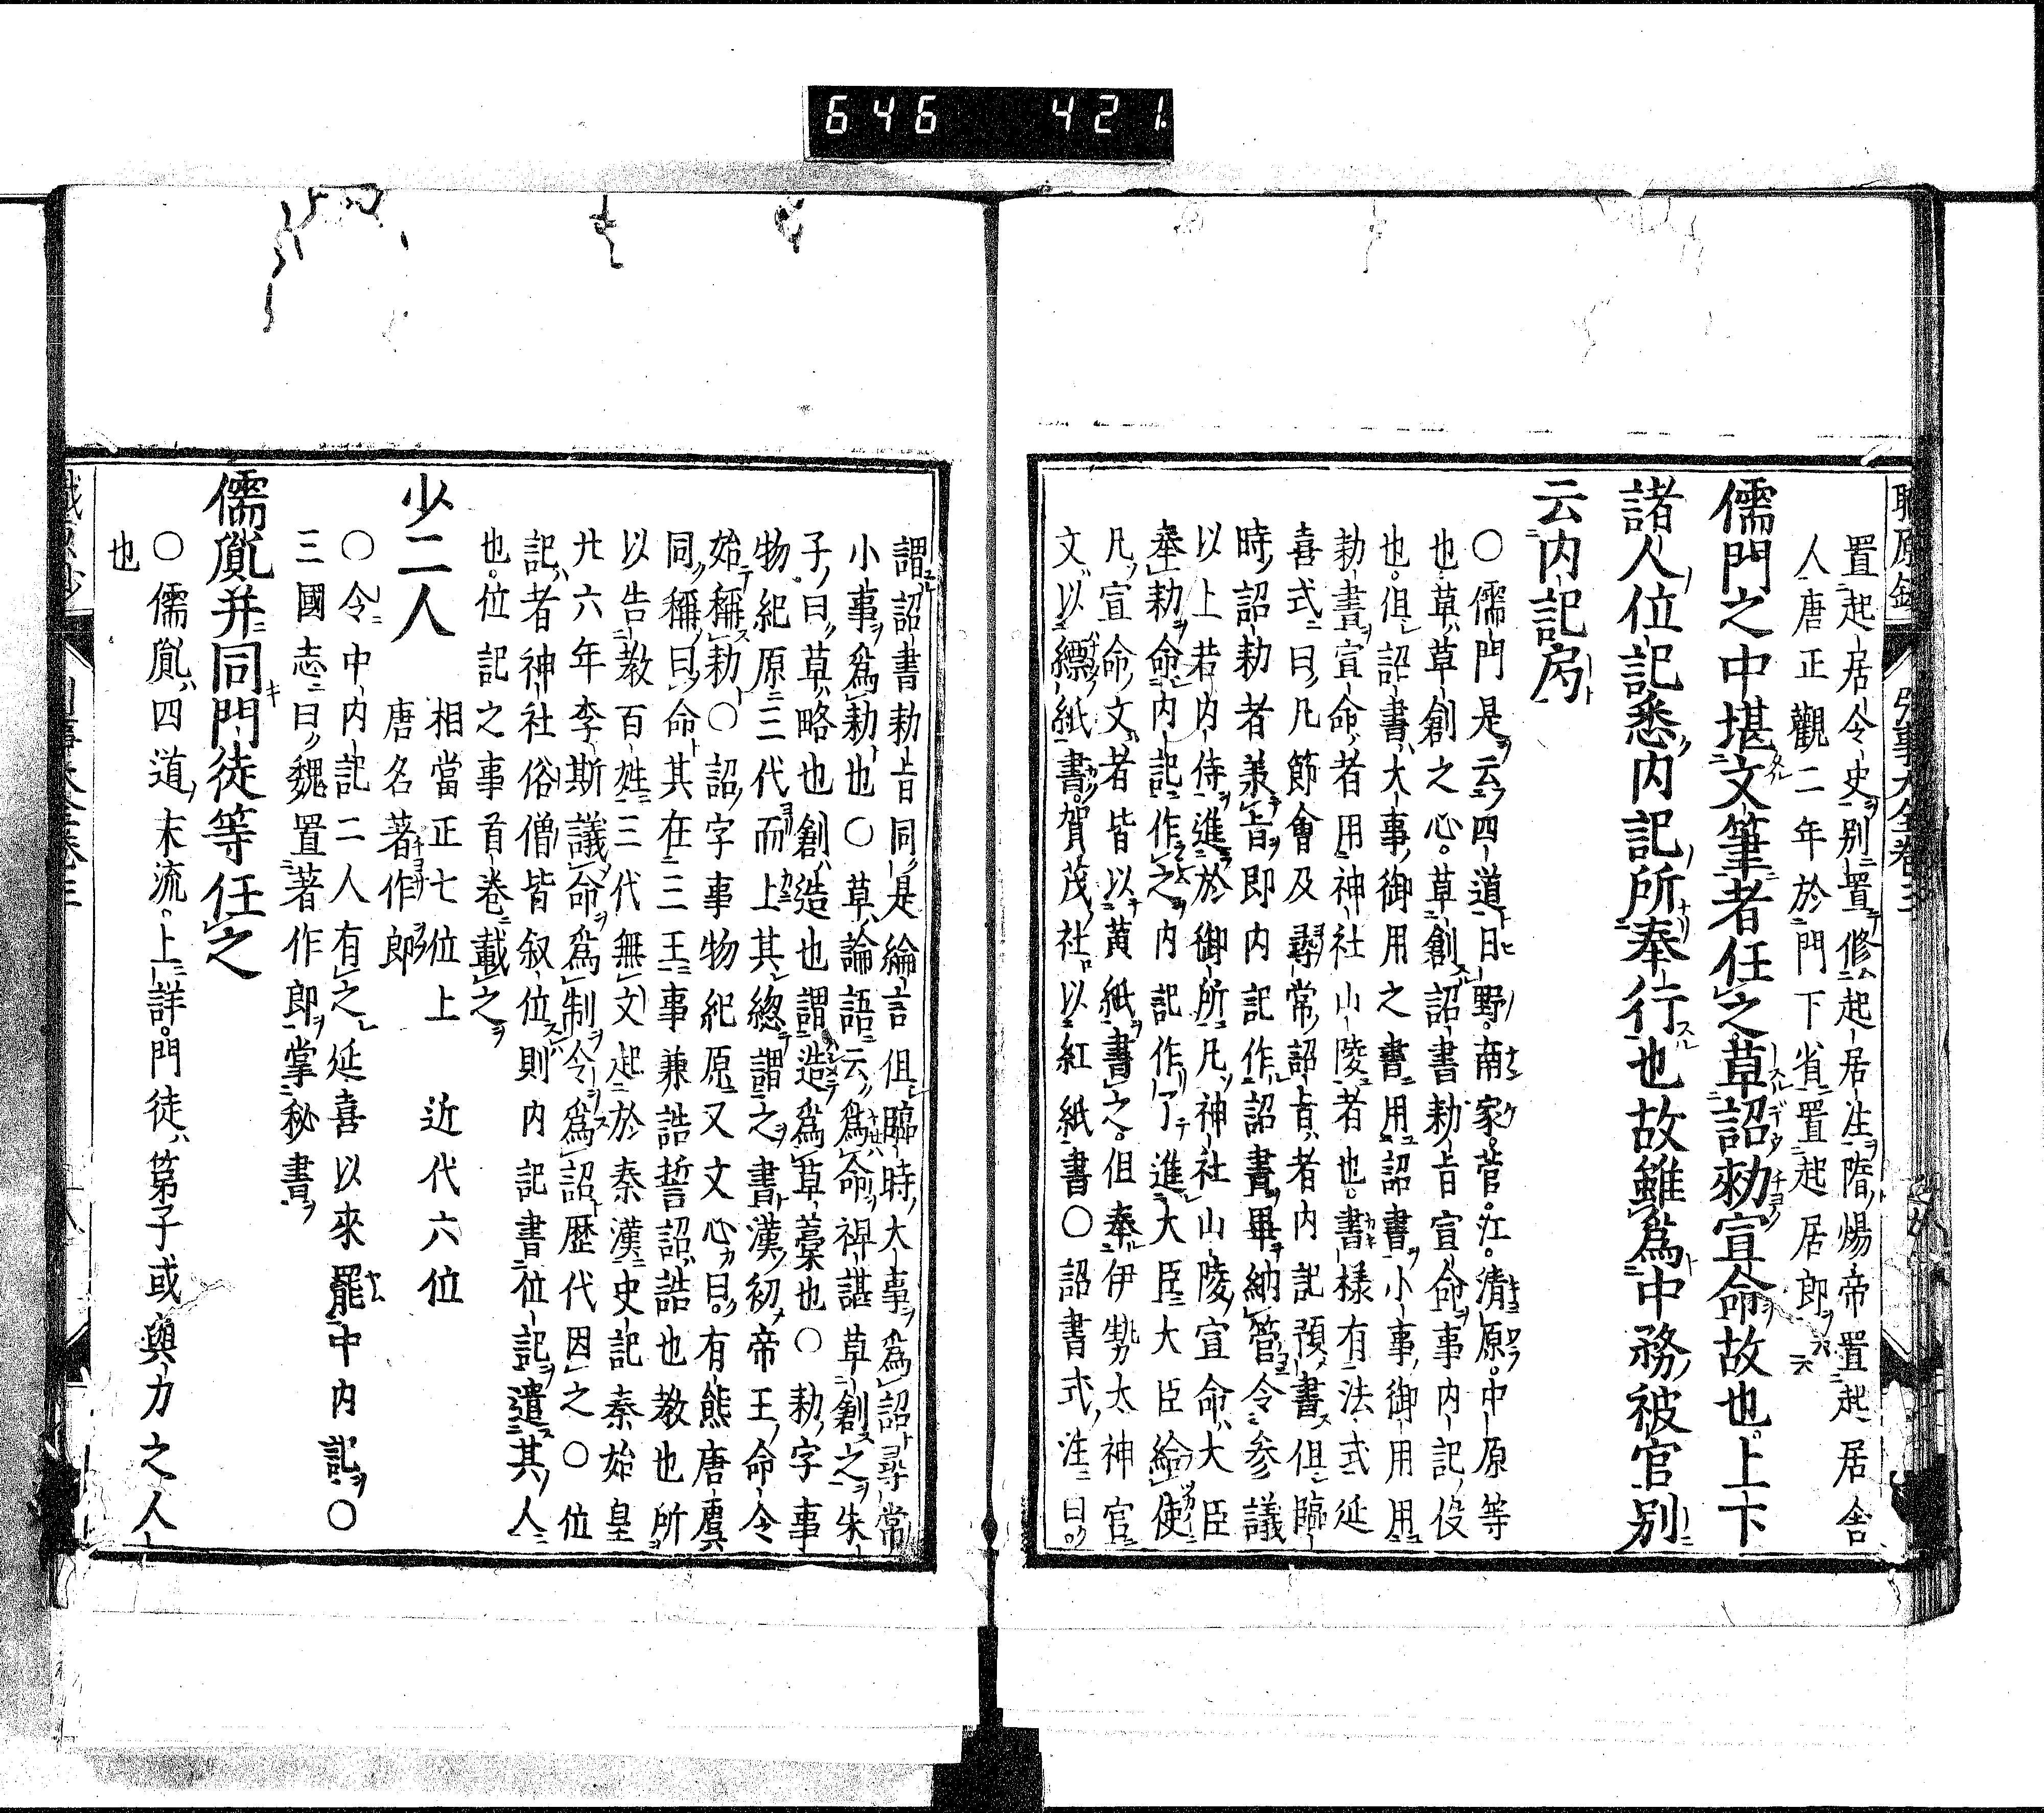 646 421
置起居令史別置修起居注隋煬帝置起居舍
人唐正觀二年於門下省置起居郎
儒門之中堪文筆者任之草詔勅宣命故也上卞
諸人位記悉內記所奉行也故雖為中務被官別
云內記局
〇儒門是云四道日野南家菅江清原中原等
也草草創之心草創詔書勅旨宣命事內記役
也但詔書大事御用之書用詔書小事御用用
勅書宣命者用神社山陵者也書樣有法式延
喜式曰凡節會及尋常詔旨者內記預書但臨
時詔勅者羕旨即內記作詔書畢納管令參議
以上若內侍進於御所凡神社山陵宣命大臣
奉勅命內記作之內記作了進大臣大臣給使
凡宣命文者皆以黃紙書之但奉伊勢太神官
文以縹紙書賀茂社以紅紙書〇詔書式注曰
謂詔書勅旨同是綸言但臨時大事為詔尋常
小事為勅也〇草論語云為命裨諶草創之朱
子曰草略也創造也謂造為草藁也〇勅字事
物紀原三代而上其總謂之書漢初帝王命令
始稱勅〇詔字事物紀原又文心曰有熊唐虞
同稱曰命其在三王事兼誥誓詔誥也教也所
以告教百姓三代無文起於秦漢史記秦始皇
廿六年李斯議命為制令為詔歷代因之〇位
記者神社俗僧皆叙位則內記書位記遣其人
也位記之事首卷載之
少二人 相當正七位上 近代六位
唐名著作郎
〇令中內記二人有之延喜以來罷中內記〇
三國志曰魏置著作郎掌秘書
儒胤并同門徒等任之
〇儒胤四道末流上詳門徒第子或與力之人
也